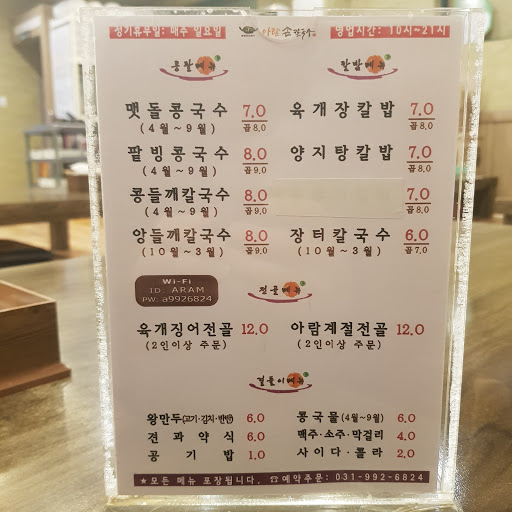 정기휴무일: 매주 일요일 아람 손칼국수 영업시간: 10시~21시
콩칼메뉴 칼밥메뉴
맷돌콩국수 7.0 육개장칼밥 7.0
(4월~9월) 곱8.0 곱8.0
팥빙콩국수 8.0 양지탕칼밥 7.0
(4월~9월) 곱9.0 곱8.0
콩들깨칼국수 8.0 7.0
(4월~9월) 곱9.0 곱8.0
앙들깨칼국수 8.0 장터칼국수 6.0
(10월~3월) 곱9.0 (10월~3월) 곱7.0
Wi-Fi
ID: ARAM
PW: a9926824
전골메뉴
육개징어전골 12.0 아람계절전골 12.0
(2인이상 주문) (2인이상 주문)
곁들이메뉴
왕만두(고기·김치·반반) 6.0 콩국물(4월~9월) 6.0
견과약식 6.0 맥주·소주·막걸리 4.0
공기밥 1.0 사이다·콜라 2.0
★모든 메뉴 포장됩니다. ☎예약주문: 031-992-6824